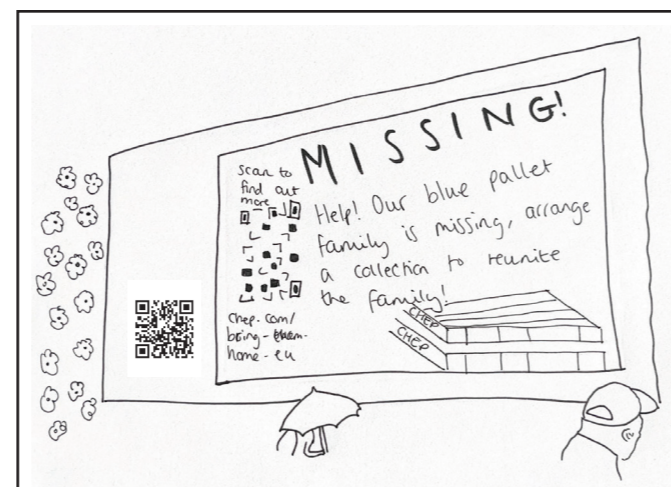 MISSING!
scan to
find out
more
Help! Our blue pallet
family is missing, arrange
a collection to reunite
the family!
chep.com/
bring-them-
home-eu
CHEP
CHEP